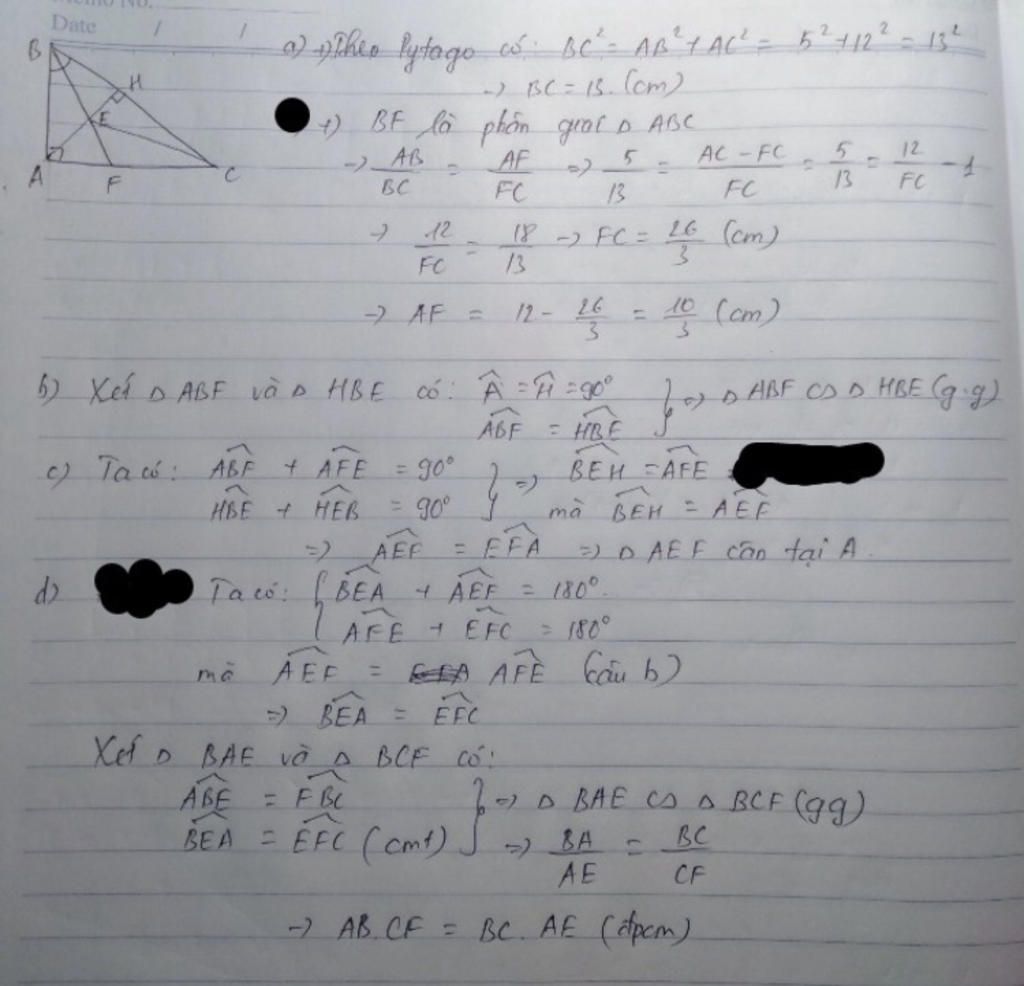 Memo No.
Date / /
B
H
E
A F C
a) +) Theo Pytago có: BC² = AB² + AC² = 5² + 12² = 13²
→ BC = 13 (cm)
+) BF là phân giác Δ ABC
→ AB/BC = AF/FC => 5/13 = AC - FC/FC = 5/13 = 12/FC - 1
→ 12/FC = 18/13 → FC = 26/3 (cm)
→ AF = 12 - 26/3 = 10/3 (cm)
b) Xét Δ ABF và Δ HBE có: Â = Ĥ = 90° } => Δ ABF ∽ Δ HBE (g.g)
ABF̂ = HBÊ
c) Ta có: ABF̂ + AFÊ = 90° } => BEĤ = AFÊ
HBÊ + HEB̂ = 90° mà BEĤ = AEF̂
=> AEF̂ = EFÂ => Δ AEF cân tại A.
d) Ta có: { BEÂ + AEF̂ = 180°.
AFÊ + EFĈ = 180°
mà AEF̂ = AFÊ (câu b)
=> BEÂ = EFĈ
Xét Δ BAE và Δ BCF có:
ABÊ = FBĈ } => Δ BAE ∽ Δ BCF (gg)
BEÂ = EFĈ (cmt) => BA/AE = BC/CF
→ AB.CF = BC.AE (đpcm)